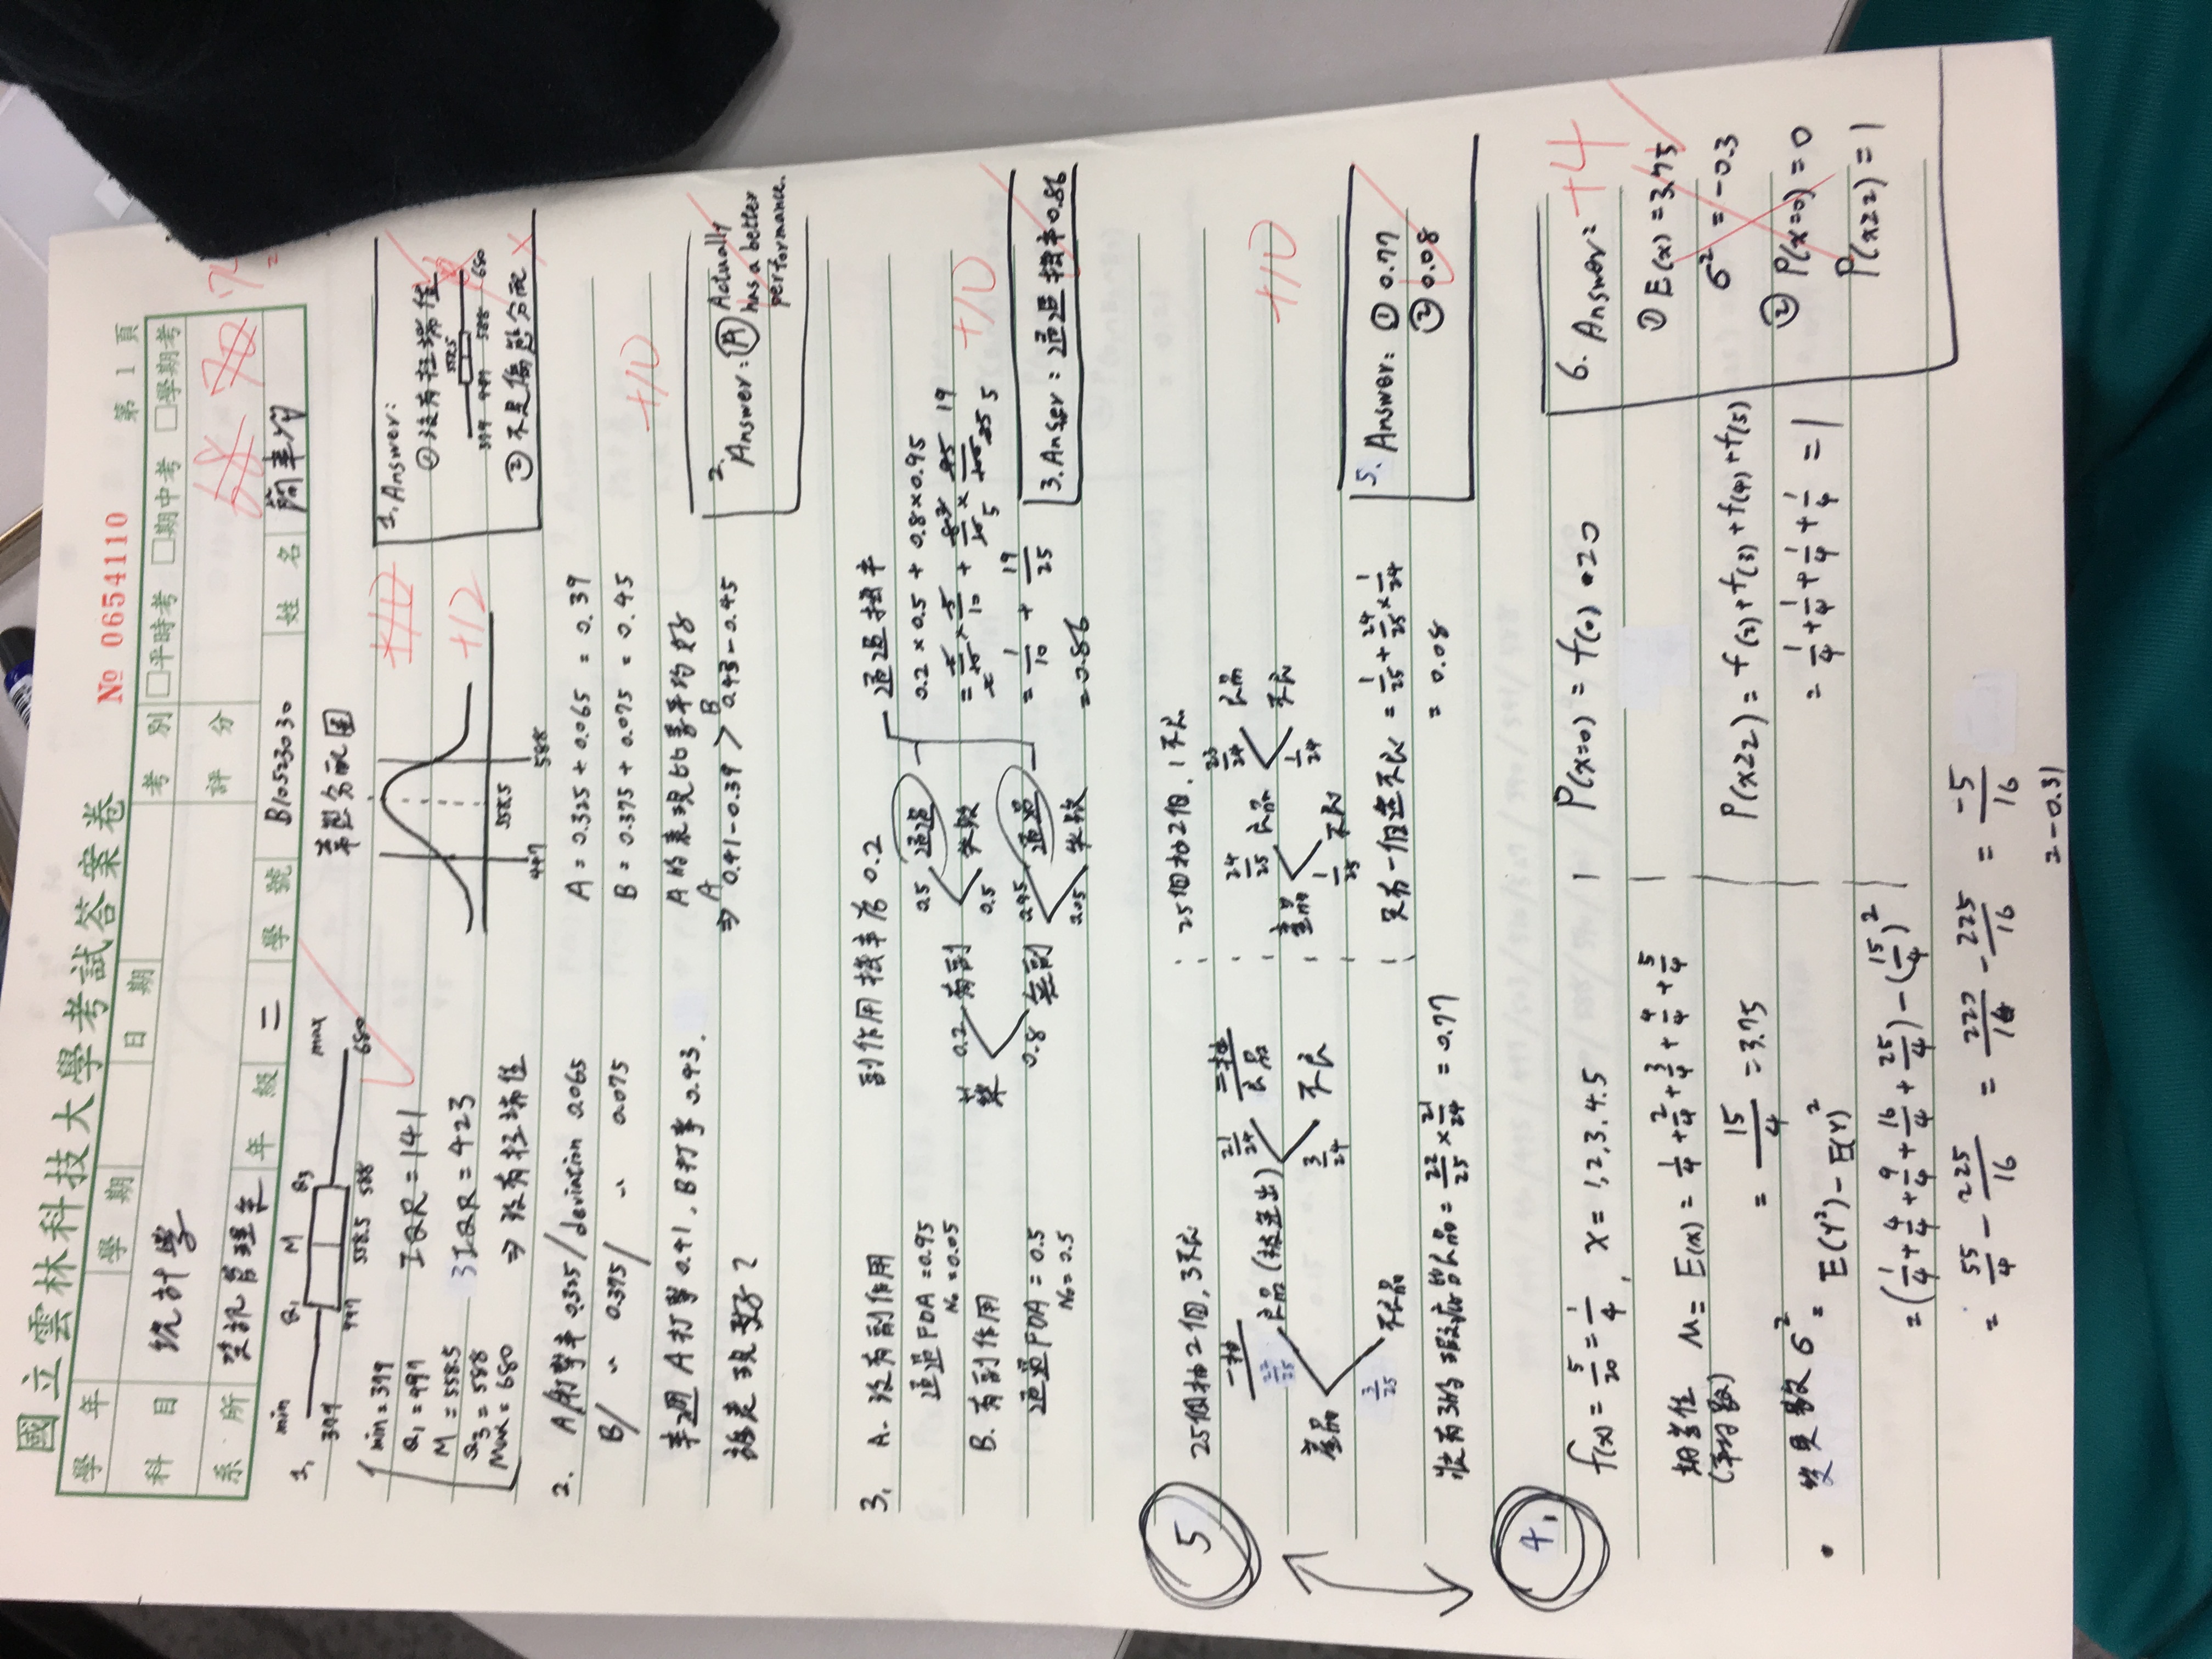 國立雲林科技大學考試答案卷
№ 0654110
第 1 頁
學 年
學 期
日 期
考 別 □平時考 □期中考 □學期考
科 目 統計學
評 分 68 70
系 所 資訊管理系 年 級 二 學 號 B10523030 姓 名
1. min Q₁ M Q₃ max
447 558.5 588 680
min = 379
Q₁ = 447
M = 558.5
Q₃ = 588
Max = 680
IQR = 141
3IQR = 423
⇒ 沒有極端值
常態分配圖
447 558.5 588
+10
+12
1. Answer:
① 沒有極端值
558.5
588 680
② 不是偏態分配
2. A/打擊率 0.325/deviation 0.065
B/ 〃 0.375/ 〃 0.075
本週 A打擊 0.41, B打率 0.43.
誰表現較好?
A = 0.325 + 0.065 = 0.39
B = 0.375 + 0.075 = 0.45
A的表現比平均好
⇒ A 0.41-0.39 > B 0.43-0.45
+10
2. Answer: Ⓐ Actually
has a better
performance.
3. A. 沒有副作用
通過FDA = 0.95
No = 0.05
B. 有副作用
通過FDA = 0.5
No = 0.5
副作用機率為 0.2
藥
0.2 有副
0.5 通過
0.5 失敗
0.8 無副
0.95 通過
0.05 失敗
通過機率
0.2 × 0.5 + 0.8 × 0.95
= 1/10 + 19/25
= 0.86
+10
3. Anser: 通過機率 0.86
5
25個抽2個, 3不良
一抽
二抽
產品
22/25 良品(被進出)
21/24 良品
3/24 不良
3/25 不良品
= 22/25 × 21/24 = 0.77
25個抽2個, 1不良
產品
24/25 良品
23/24 良品
1/24 不良
1/25 不良
只有一個是不良 = 1/25 + 24/25 × 1/24
= 0.08
+10
5. Answer: ① 0.77
② 0.08
4.
f(x) = 5/20 = 1/4, x = 1,2,3,4.5
期望值 (平均數) M = E(x) = 1/4 + 2/4 + 3/4 + 4/4 + 5/4
= 15/4 = 3.75
變異數 σ² = E(Y²) - E(Y)²
= (1/4 + 4/4 + 9/4 + 16/4 + 25/4) - (15/4)²
= 55/4 - 225/16 = 220/16 - 225/16 = -5/16
= -0.31
P(x=0) = f(0) = 0
P(x≥2) = f(2) + f(3) + f(4) + f(5)
= 1/4 + 1/4 + 1/4 + 1/4 = 1
6. Answer: +4
① E(x) = 3.75
σ² = -0.3
② P(x=0) = 0
P(x≥2) = 1